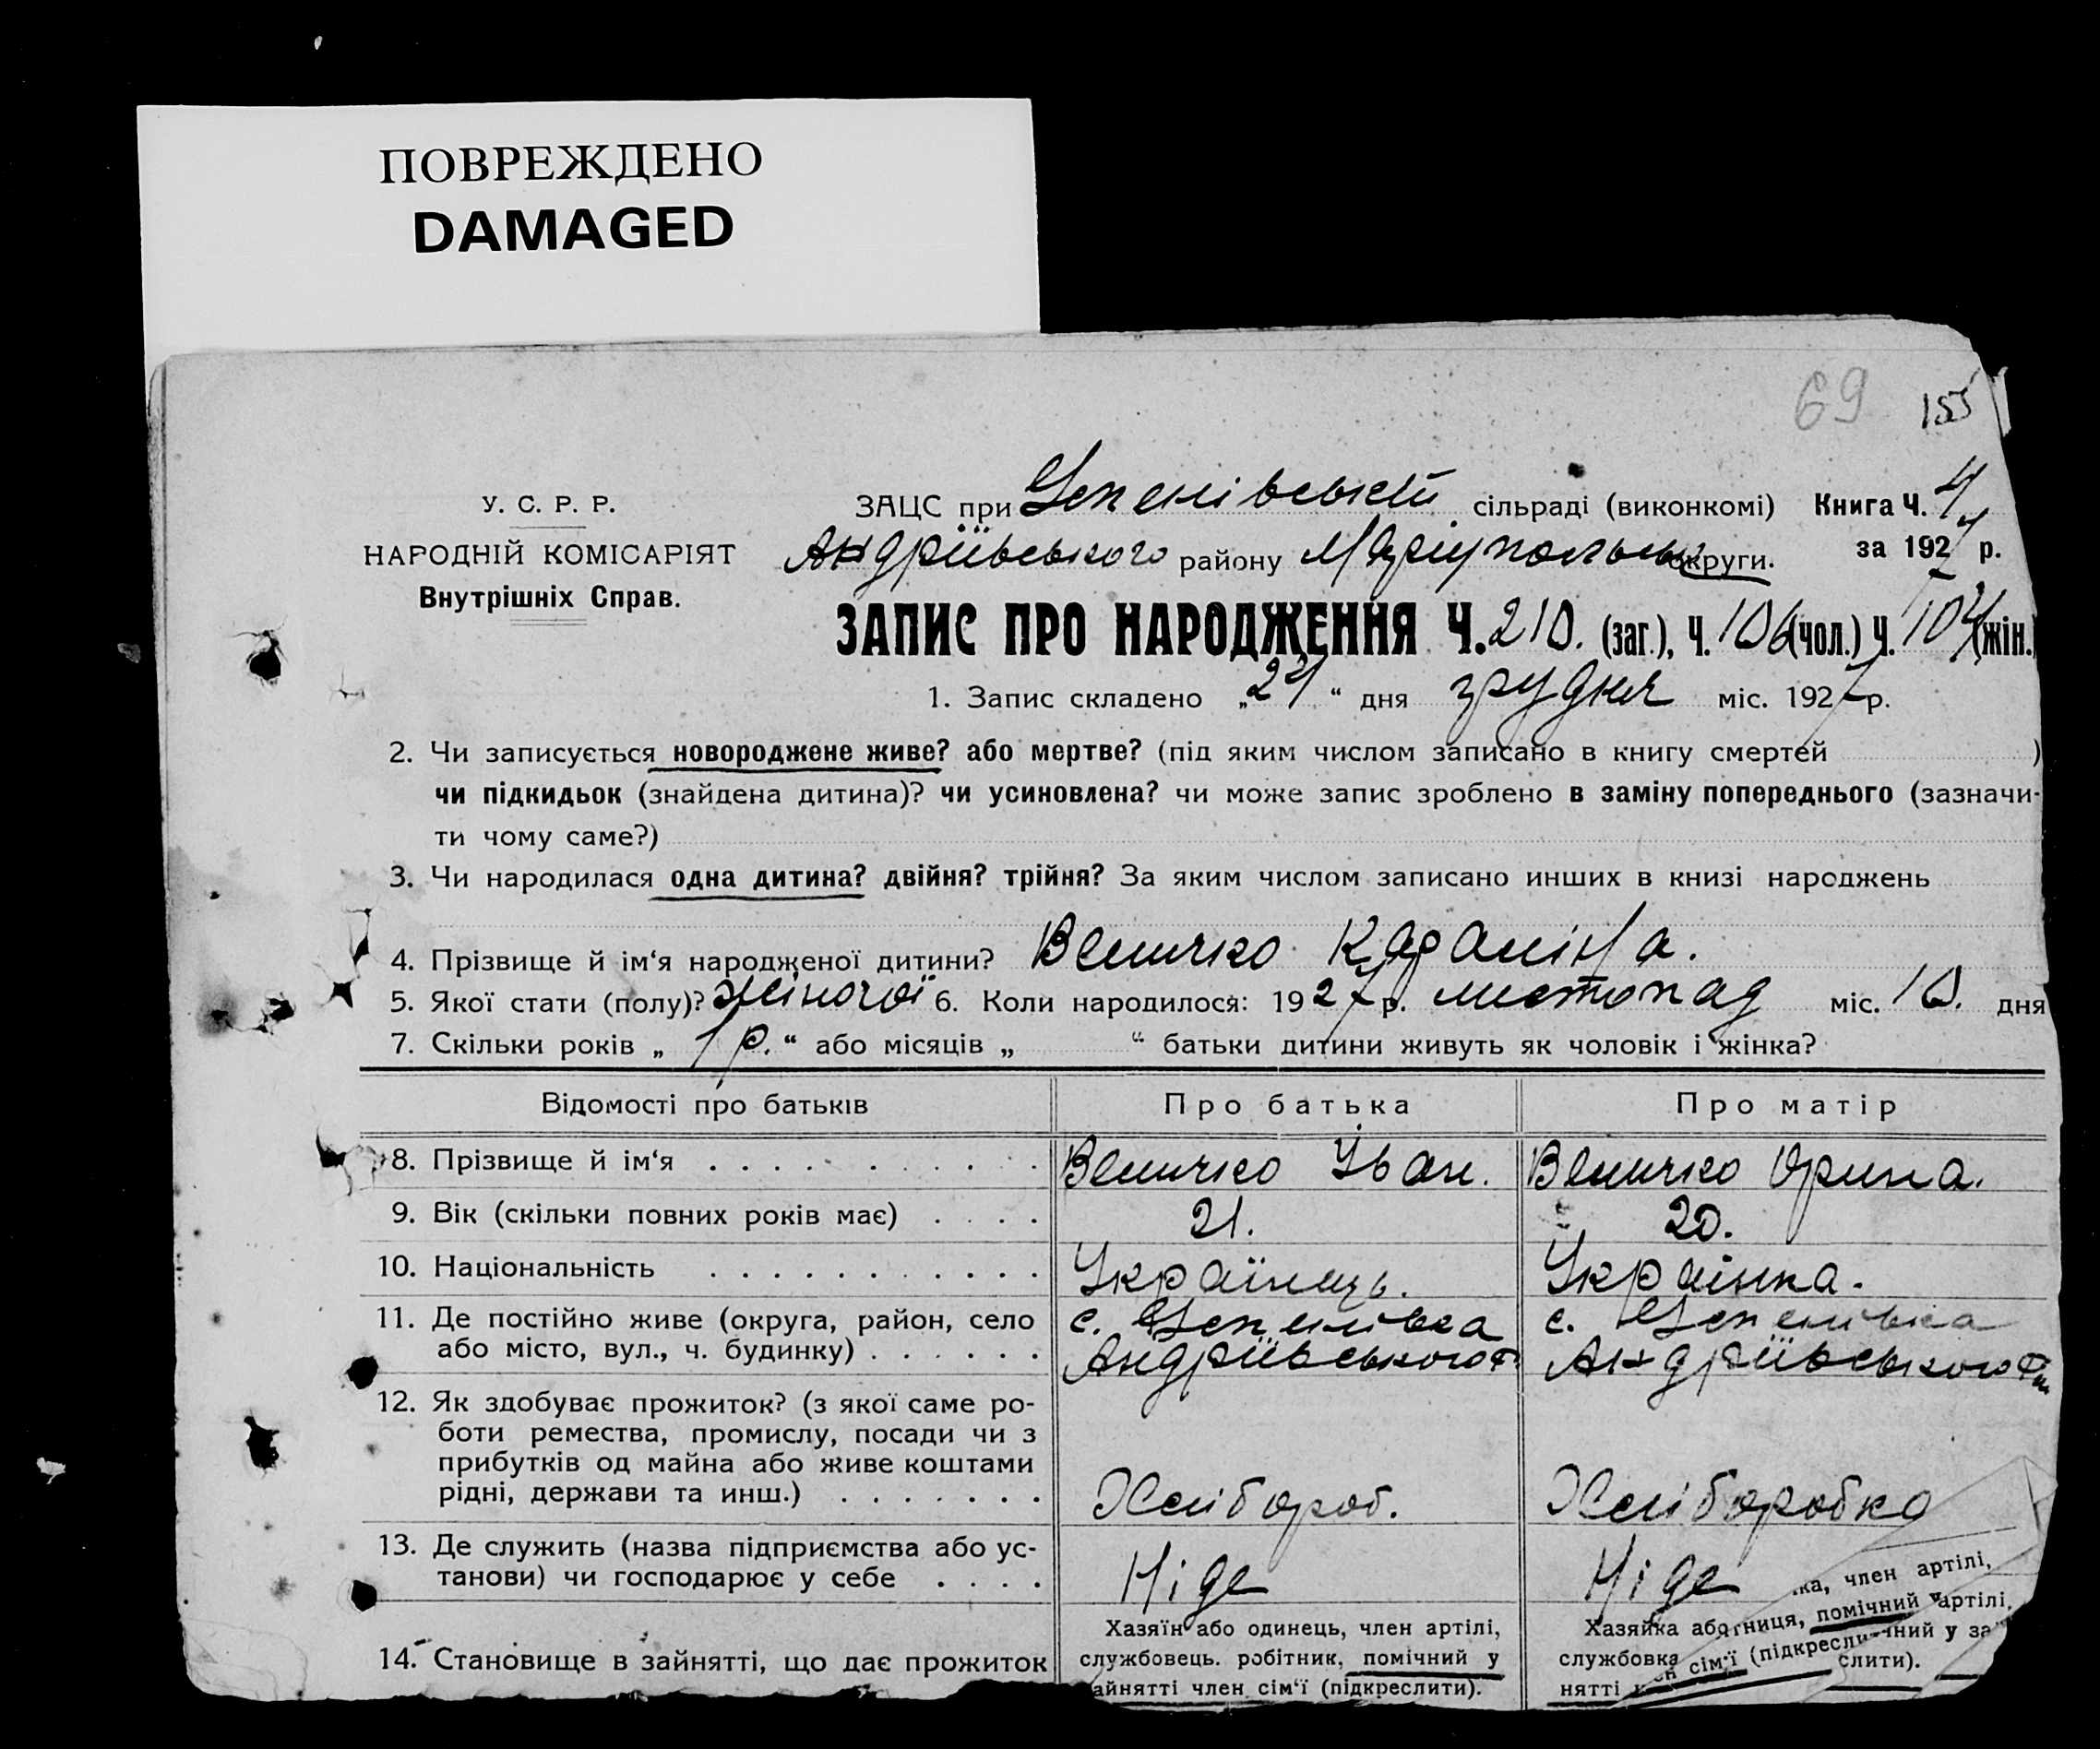 ПОВРЕЖДЕНО
DAMAGED
69 155
У. С. Р. Р.
НАРОДНІЙ КОМІСАРІЯТ
Внутрішніх Справ.
ЗАЦС при Успенівській сільраді (виконкомі) Книга Ч. 4
Андріївського району Маріупольськ округи. за 1927 р.
ЗАПИС ПРО НАРОДЖЕННЯ Ч. 210. (заг.), Ч. 106 (чол.) Ч. 104 (жін.)
1. Запис складено „24“ дня грудня міс. 1927 р.
2. Чи записується новороджене живе? або мертве? (під яким числом записано в книгу смертей )
чи підкидьок (знайдена дитина)? чи усиновлена? чи може запис зроблено в заміну попереднього (зазначи-
ти чому саме?)
3. Чи народилася одна дитина? двійня? трійня? За яким числом записано инших в книзі народжень
4. Прізвище й ім‘я народженої дитини? Величко Караліна.
5. Якої стати (полу)? жіночої 6. Коли народилося: 1927 р. листопад міс. 10. дня
7. Скільки років „ 1 р. “ або місяців „ “ батьки дитини живуть як чоловік і жінка?
Відомості про батьків Про батька Про матір
8. Прізвище й ім‘я Величко Іван. Величко Орина.
9. Вік (скільки повних років має) 21. 20.
10. Національність Українець. Українка.
11. Де постійно живе (округа, район, село с. Успенівка с. Успенівка
або місто, вул., ч. будинку) Андріївського Андріївського
12. Як здобуває прожиток? (з якої саме ро-
боти ремества, промислу, посади чи з
прибутків од майна або живе коштами
рідні, держави та инш.) Хлібороб. Хліборобка
13. Де служить (назва підприємства або ус-
танови) чи господарює у себе Ніде Ніде
14. Становище в зайнятті, що дає прожиток
Хазяїн або одинець, член артілі,
службовець. робітник, помічний у
айнятті член сім‘ї (підкреслити).
Хазяйка або тниця, помічний артілі,
службовка сім‘ї (підкресли чний у за
нятті слити).
ка, член артілі,